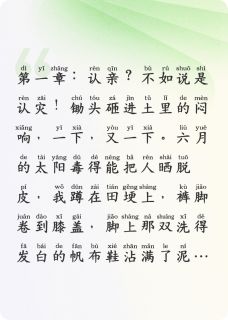 dì yī zhāng rèn qīn bù rú shuō shì
第一章：认亲？不如说是
rèn zāi chú tóu zá jìn tǔ lǐ de mèn
认灾！锄头砸进土里的闷
xiǎng yī xià yòu yī xià liù yuè
响，一下，又一下。六月
de tài yáng dú de néng bǎ rén shài tuō
的太阳毒得能把人晒脱
pí wǒ dūn zài tián gěng shàng kù jiǎo
皮，我蹲在田埂上，裤脚
juǎn dào xī gài jiǎo shàng nà shuāng xǐ dé
卷到膝盖，脚上那双洗得
fā bái de fān bù xié zhān mǎn le ní
发白的帆布鞋沾满了泥…